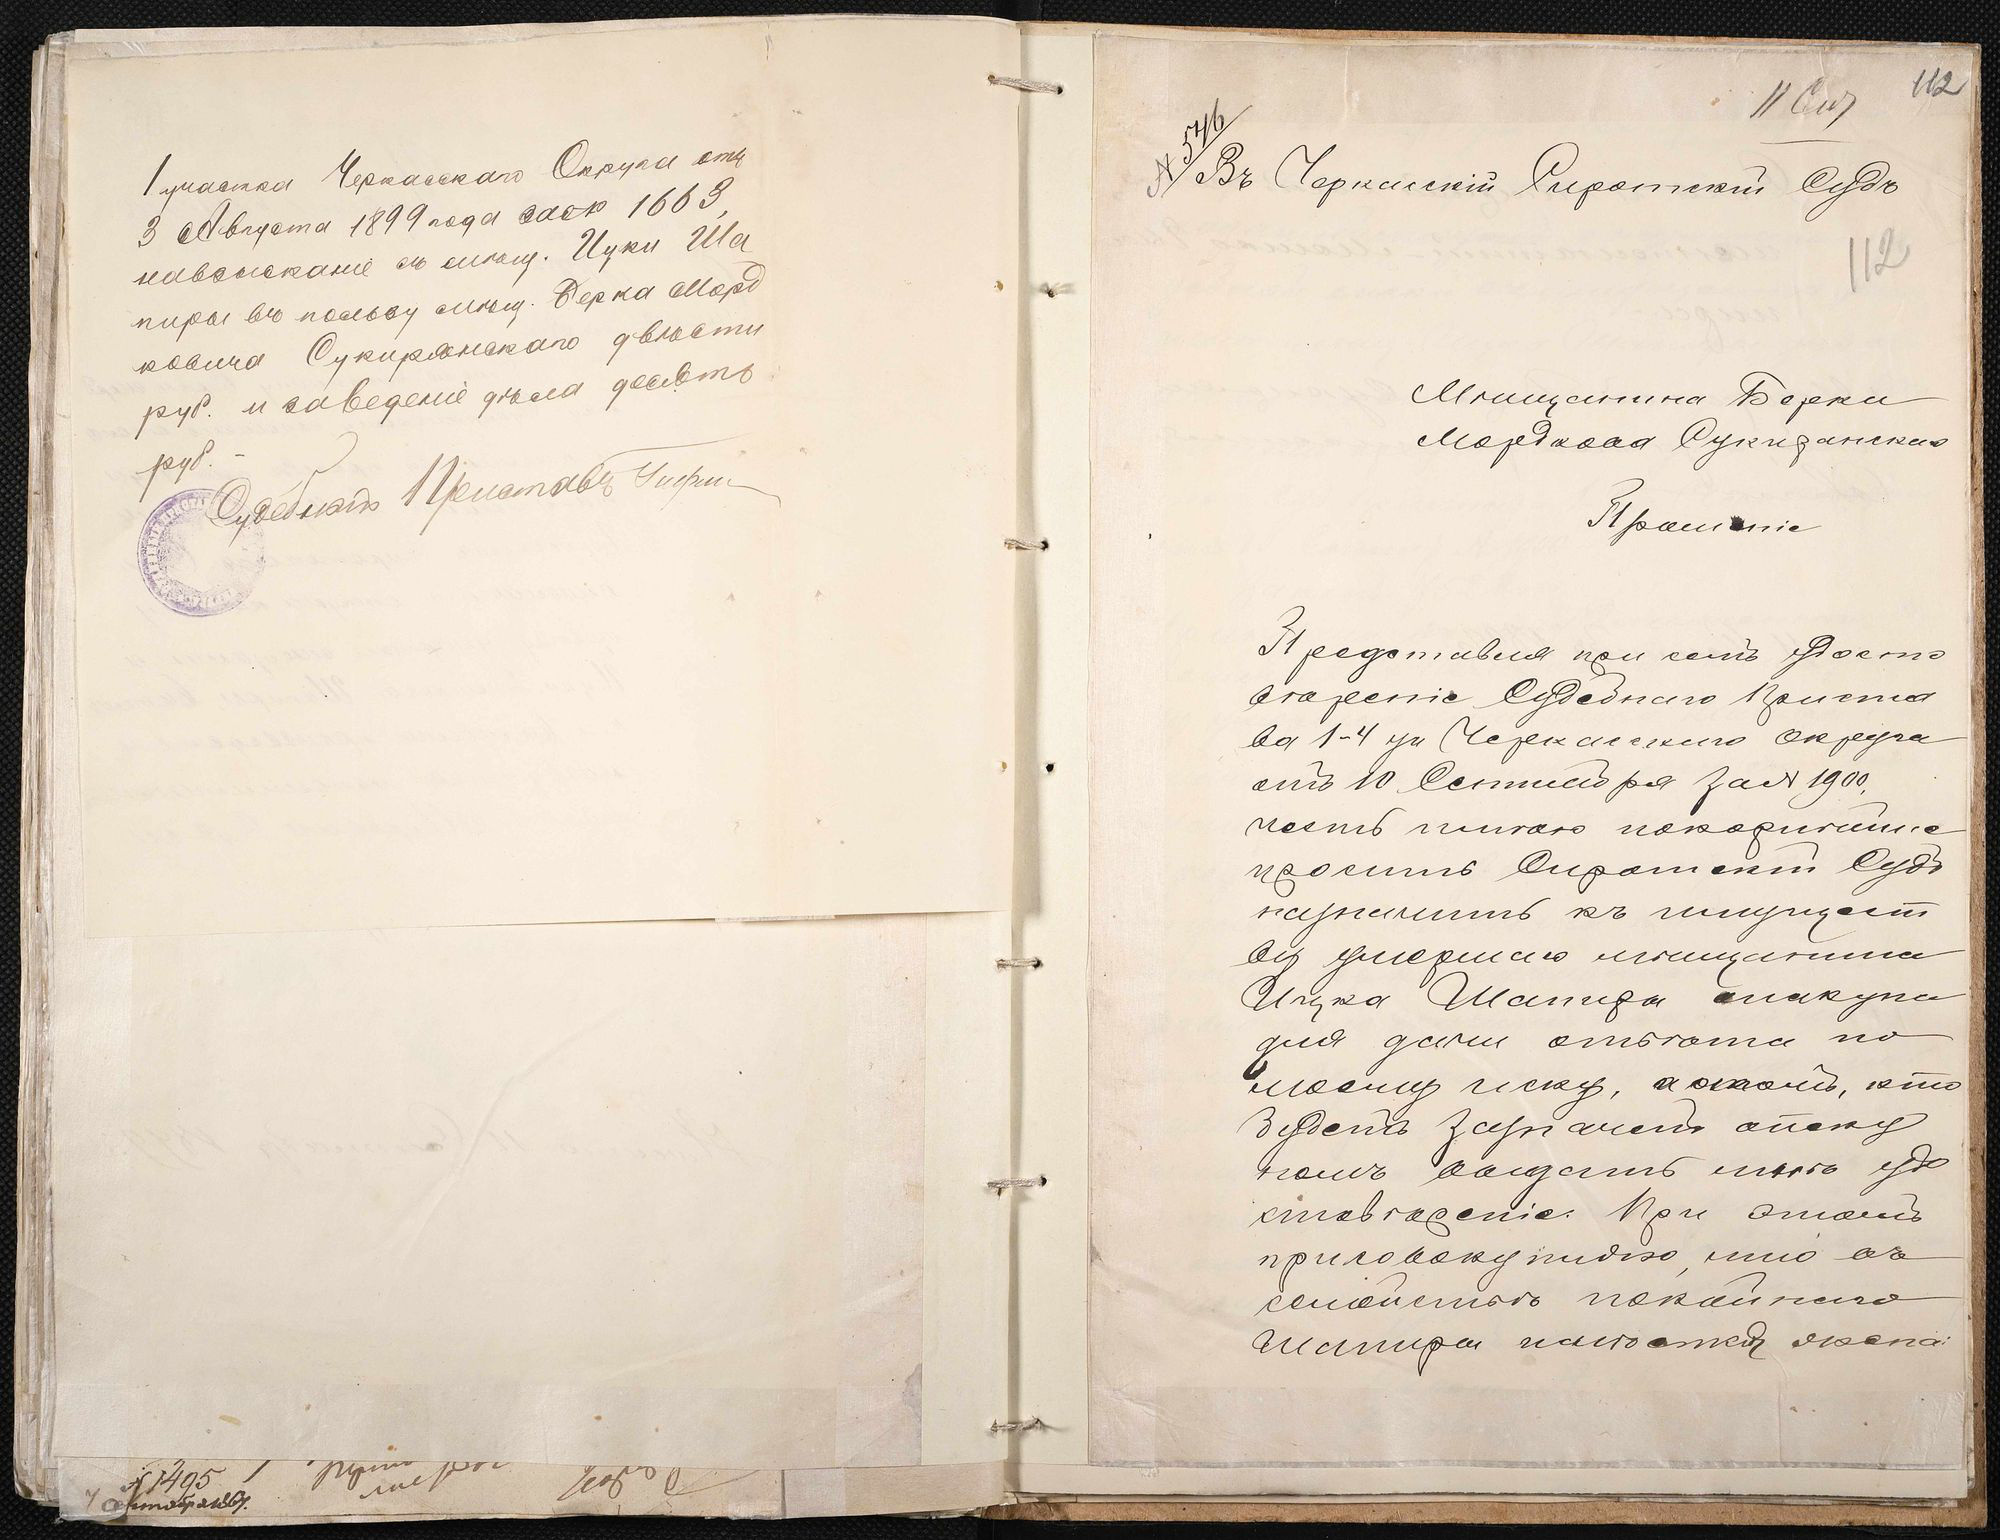 1 участка Черкасскаго Округа отъ
3 Августа 1899 года за № 1663,
на взысканіе съ мѣщ. Ицки Ша
пиры въ пользу мѣщ. Берка Морд
ковича Сукирянскаго двѣсти
руб. и заведеніе дѣла десять
руб. -
Судебный Приставъ
№ 1495
112
№ 546
Въ Черкасскій Сиротскій Судъ
112
Мѣщанина Берки
Мордкова Сукирянскаго
Прошеніе
Представляя при семъ удосто
вѣреніе Судебнаго Приста
ва 1-4 уч Черкасскаго округа
отъ 10 Сентября за № 1900,
честь имѣю покорнѣйше
просить Сиротскій Судъ
назначить къ имущест
ву умершаго мѣщанина
Ицка Шапиры опекуна
для дачи отвѣта по
моему иску, о томъ, кто
будетъ назначенъ опеку
номъ выдать мнѣ удо
стовѣреніе. При этомъ
присовокупляю, что въ
семействѣ покойнаго
Шапиры